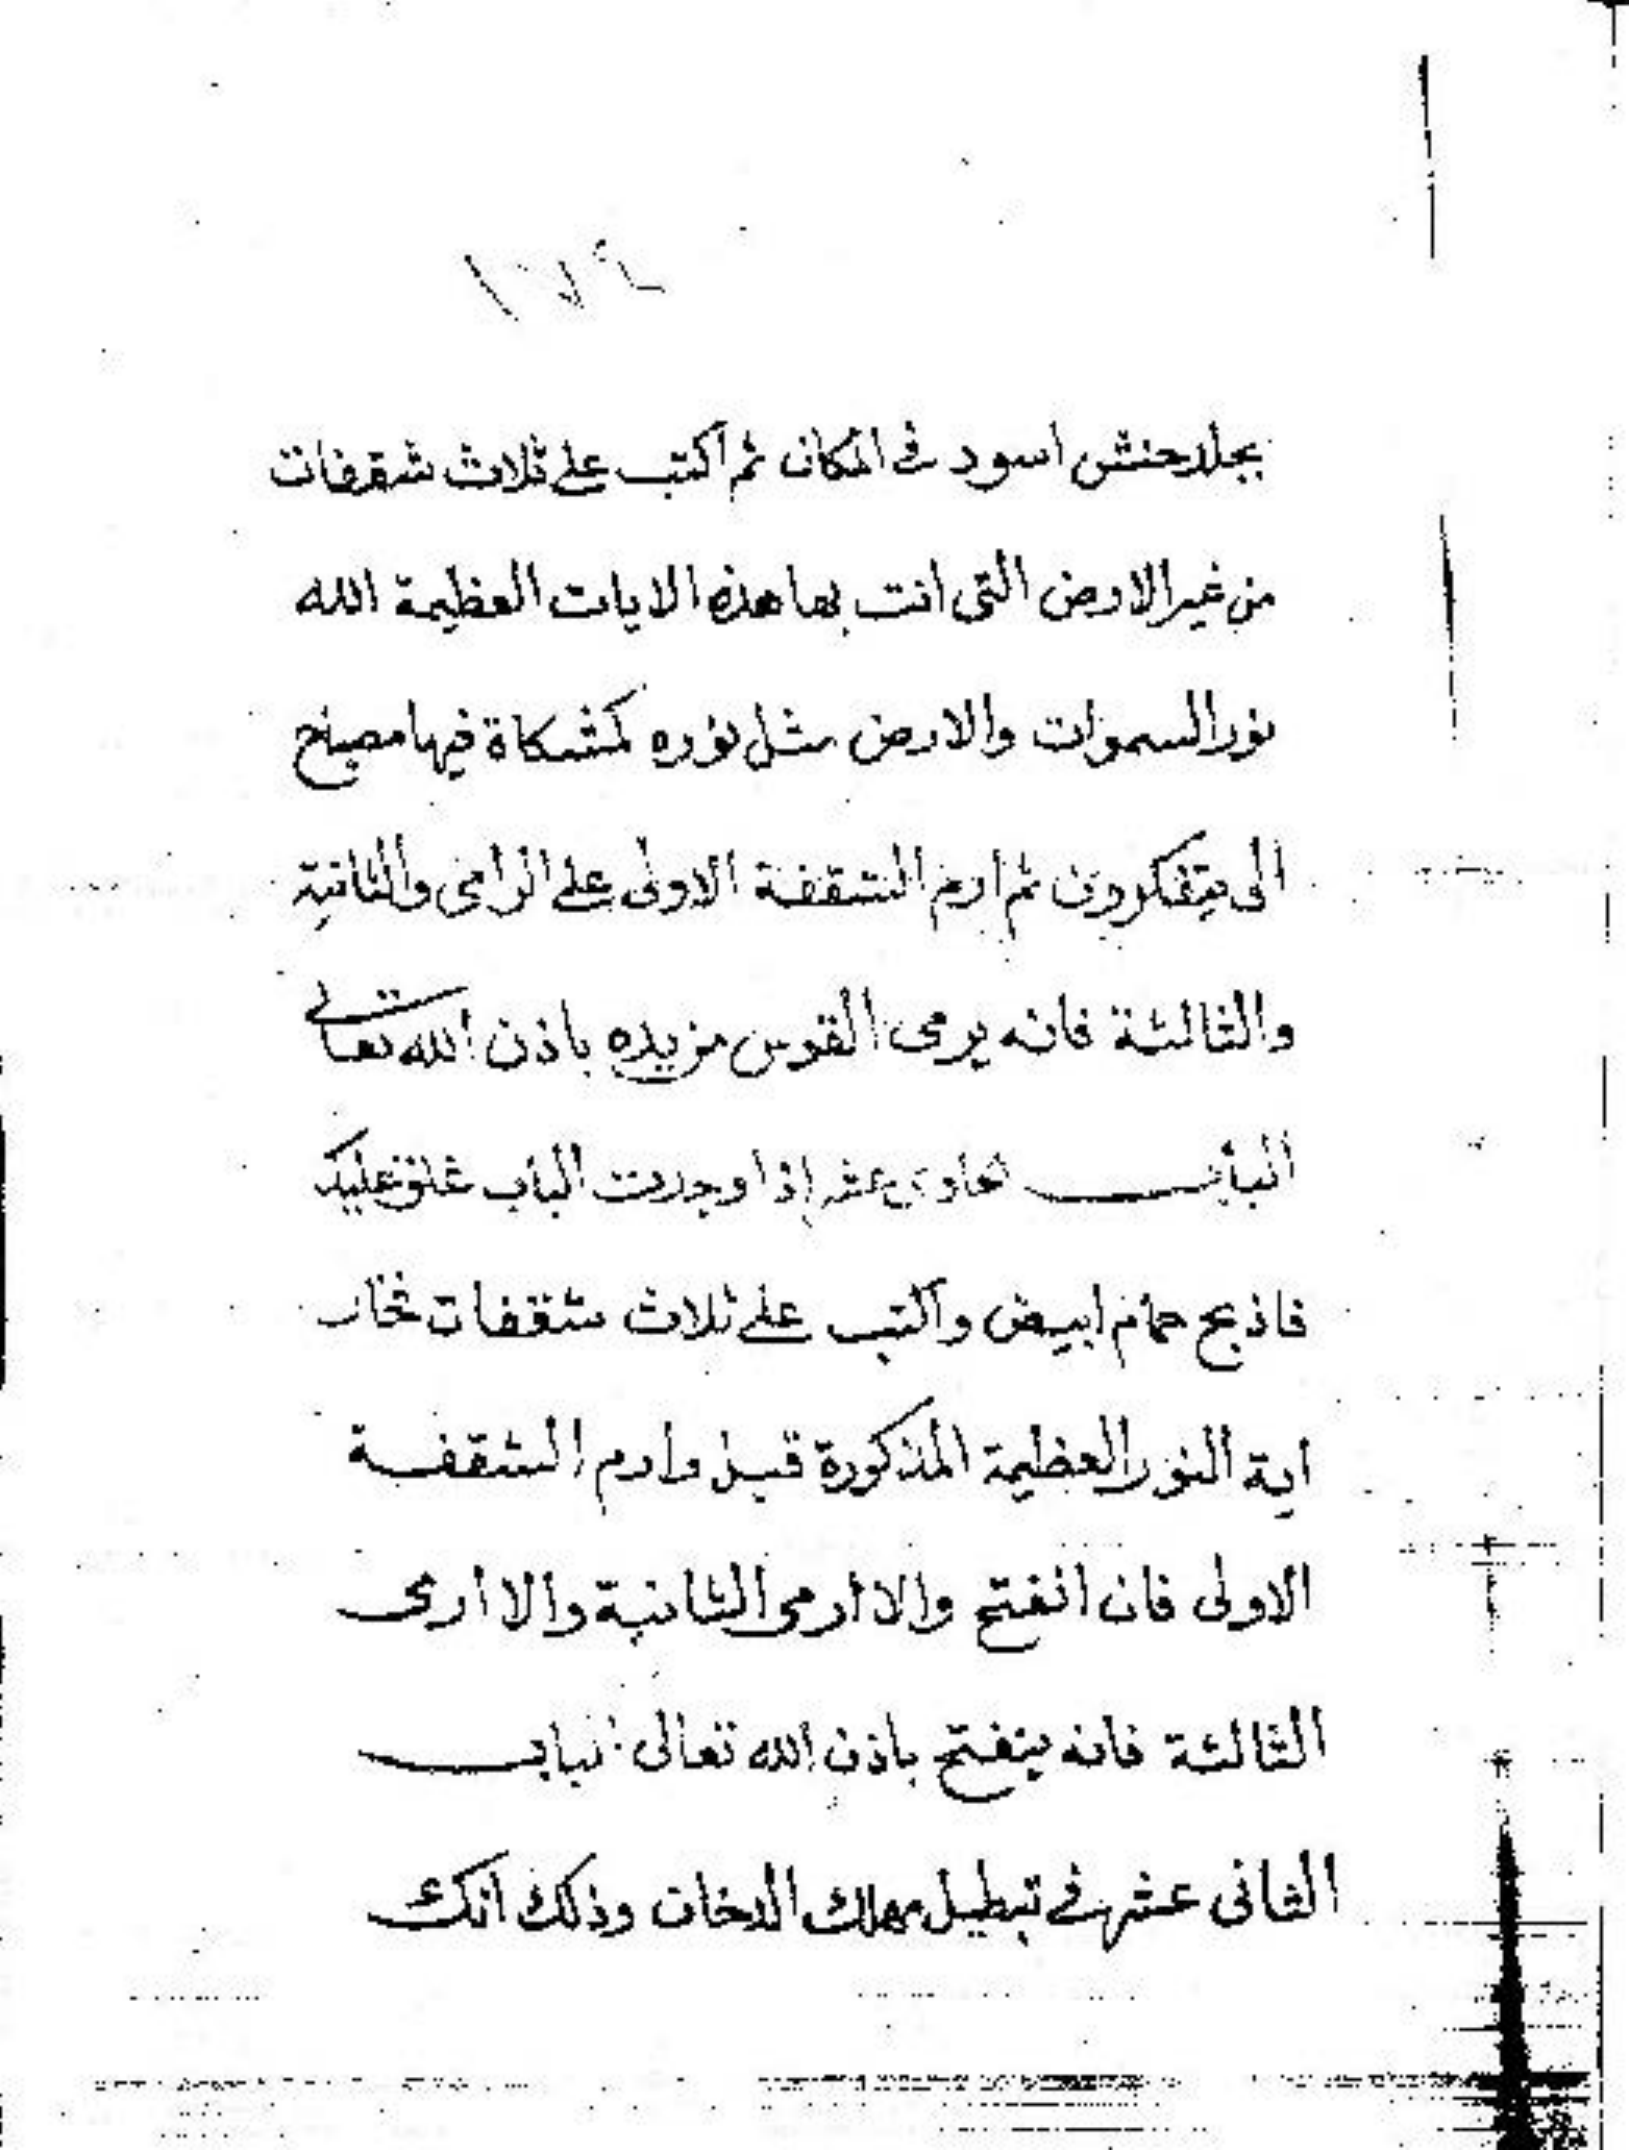 ١٧٤
بجلد حنش اسود فى المكان ثم اكتب على ثلاث شقفات
من غير الارض التى انت بها هذه الايات العظيمة الله
نور السموات والارض مثل نوره كمشكاة فيها مصباح
الى يتفكرون ثم ارم الشقفة الاولى على الرامى والثانية
والثالثة فانه يرمى القوس من يده باذن الله تعالى
الباب عشر اذا وجدت الباب غلق عليك
فاذبح حمام ابيض واكتب على ثلاث شقفات فخار
اية النور العظيمة المذكورة قبل وارم الشقفة
الاولى فان انفتح والا ارمى الثانية والا ارمى
الثالثة فانه ينفتح باذن الله تعالى الباب
الثانى عشر فى تبطيل مهلك الدخان وذلك انك